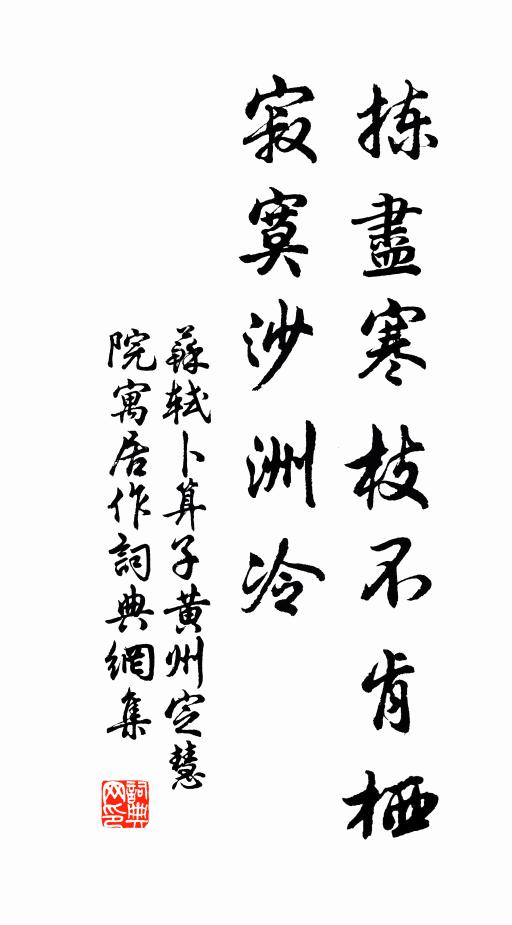 揀盡寒枝不肯栖
寂寞沙洲冷
蘇軾卜算子黄州定慧
院寓居作詞典網集
詞典网印